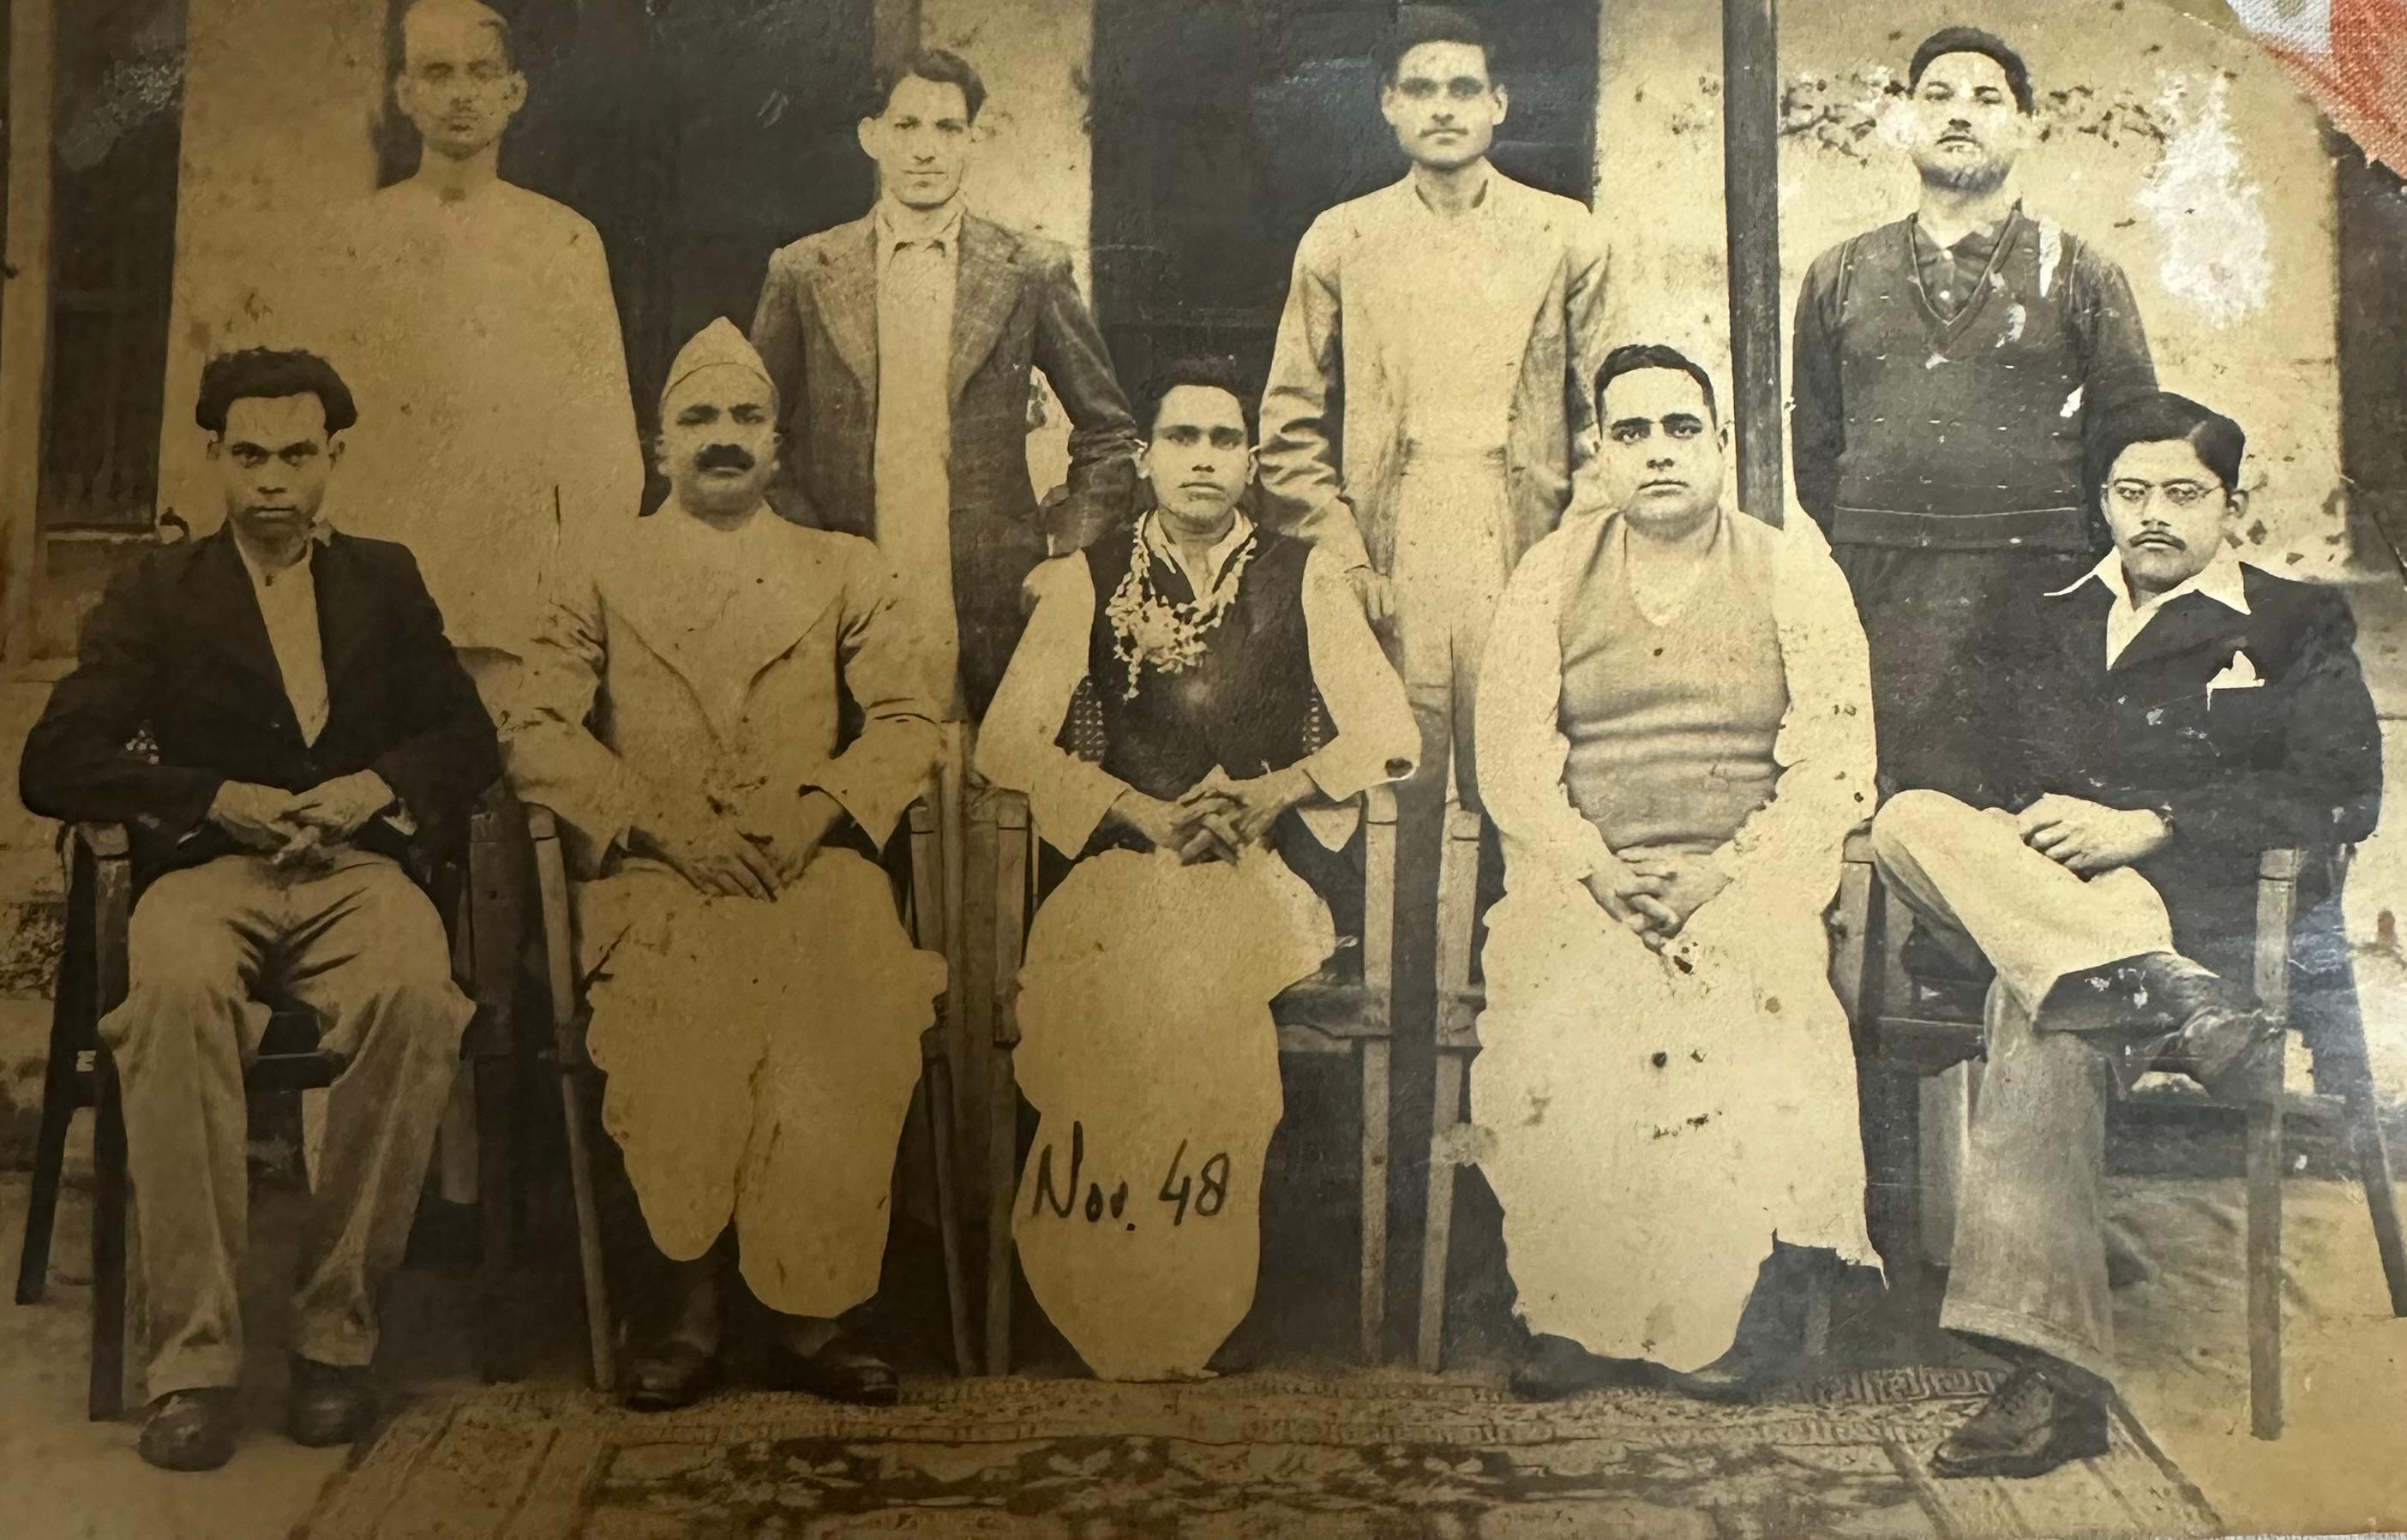 Nov. 48